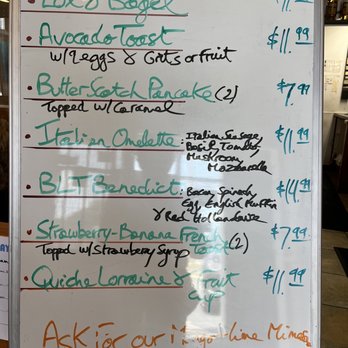 Lox & Bagel $11.99
• Avocado Toast $11.99
w/ eggs & Grits or Fruit
• Butter Scotch Pancake (2) $7.99
Topped w/ Caramel
• Italian Omelette: Italian Sausage, $11.99
Basil, Tomato
Mushroom
Mozzarella
• BLT Benedict: Bacon, Spinach $14.99
Egg, English Muffin
& Red Hollandaise
• Strawberry-Banana French $7.99
Toast (2)
Topped w/ Strawberry Syrup
• Quiche Lorraine & Fruit $11.99
Cup
Ask For our